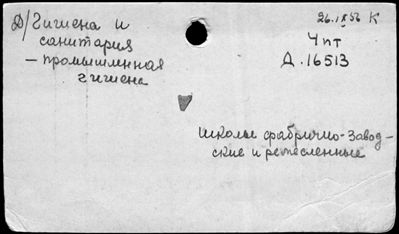 Д/Гигиена и
санитария
– промышленная
гигиена
26.IX 56 К
Чпт
Д.16513
Школы фабрично-завод-
ские и ремесленные